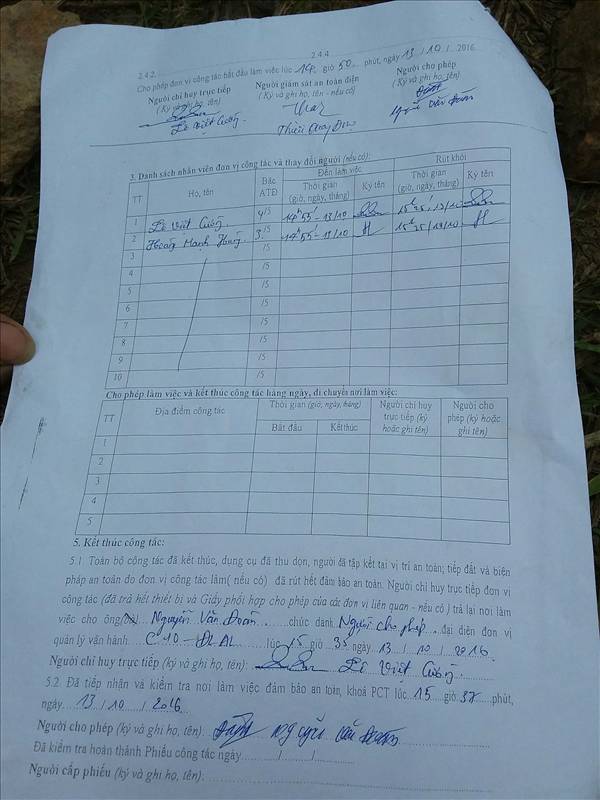 2.4.4
2.4.2. Cho phép đơn vị công tác bắt đầu làm việc lúc 14 giờ 50 phút, ngày 13 / 10 / 2016
Người chỉ huy trực tiếp Người giám sát an toàn điện Người cho phép
(Ký và ghi họ, tên) (Ký và ghi họ, tên - nếu có) (Ký và ghi họ, tên)
Lê Việt Cường
3. Danh sách nhân viên đơn vị công tác và thay đổi người (nếu có):
TT Họ, tên Bậc ATĐ Đến làm việc Rút khỏi
Thời gian (giờ, ngày, tháng) Ký tên Thời gian (giờ, ngày, tháng) Ký tên
1 Lê Việt Cường 4/5 14h55' - 13/10 15h25' 13/10
2 Hoàng Mạnh Hùng 3/5 14h55' - 13/10 15h25' 13/10
3 /5
4 /5
5 /5
6 /5
7 /5
8 /5
9 /5
10 /5
Cho phép làm việc và kết thúc công tác hàng ngày, di chuyển nơi làm việc:
TT Địa điểm công tác Thời gian (giờ, ngày, tháng) Người chỉ huy trực tiếp (ký hoặc ghi tên) Người cho phép (ký hoặc ghi tên)
Bắt đầu Kết thúc
1
2
3
4
5
5. Kết thúc công tác:
5.1 Toàn bộ công tác đã kết thúc, dụng cụ đã thu dọn, người đã tập kết tại vị trí an toàn; tiếp đất và biện
pháp an toàn do đơn vị công tác làm( nếu có) đã rút hết đảm bảo an toàn. Người chỉ huy trực tiếp đơn vị
công tác (đã trả hết thiết bị và Giấy phối hợp cho phép của các đơn vị liên quan - nếu có ) trả lại nơi làm
việc cho ông(bà) Nguyễn Văn Đoàn chức danh Người cho phép đại diện đơn vị
quản lý vận hành C10 - ĐLAL lúc 15 giờ 35 ngày 13 / 10 / 2016
Người chỉ huy trực tiếp (ký và ghi họ, tên): Lê Việt Cường
5.2. Đã tiếp nhận và kiểm tra nơi làm việc đảm bảo an toàn, khoá PCT lúc 15 giờ 37 phút,
ngày 13 / 10 / 2016
Người cho phép (ký và ghi họ, tên). Nguyễn Văn Đoàn
Đã kiểm tra hoàn thành Phiếu công tác ngày ....../....../......
Người cấp phiếu (ký và ghi họ, tên):